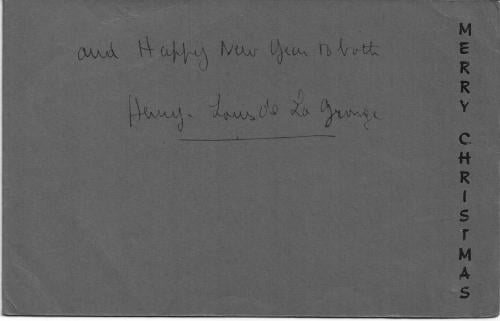 and Happy New Year to both
Henry-Louis de La Grange
MERRY CHRISTMAS